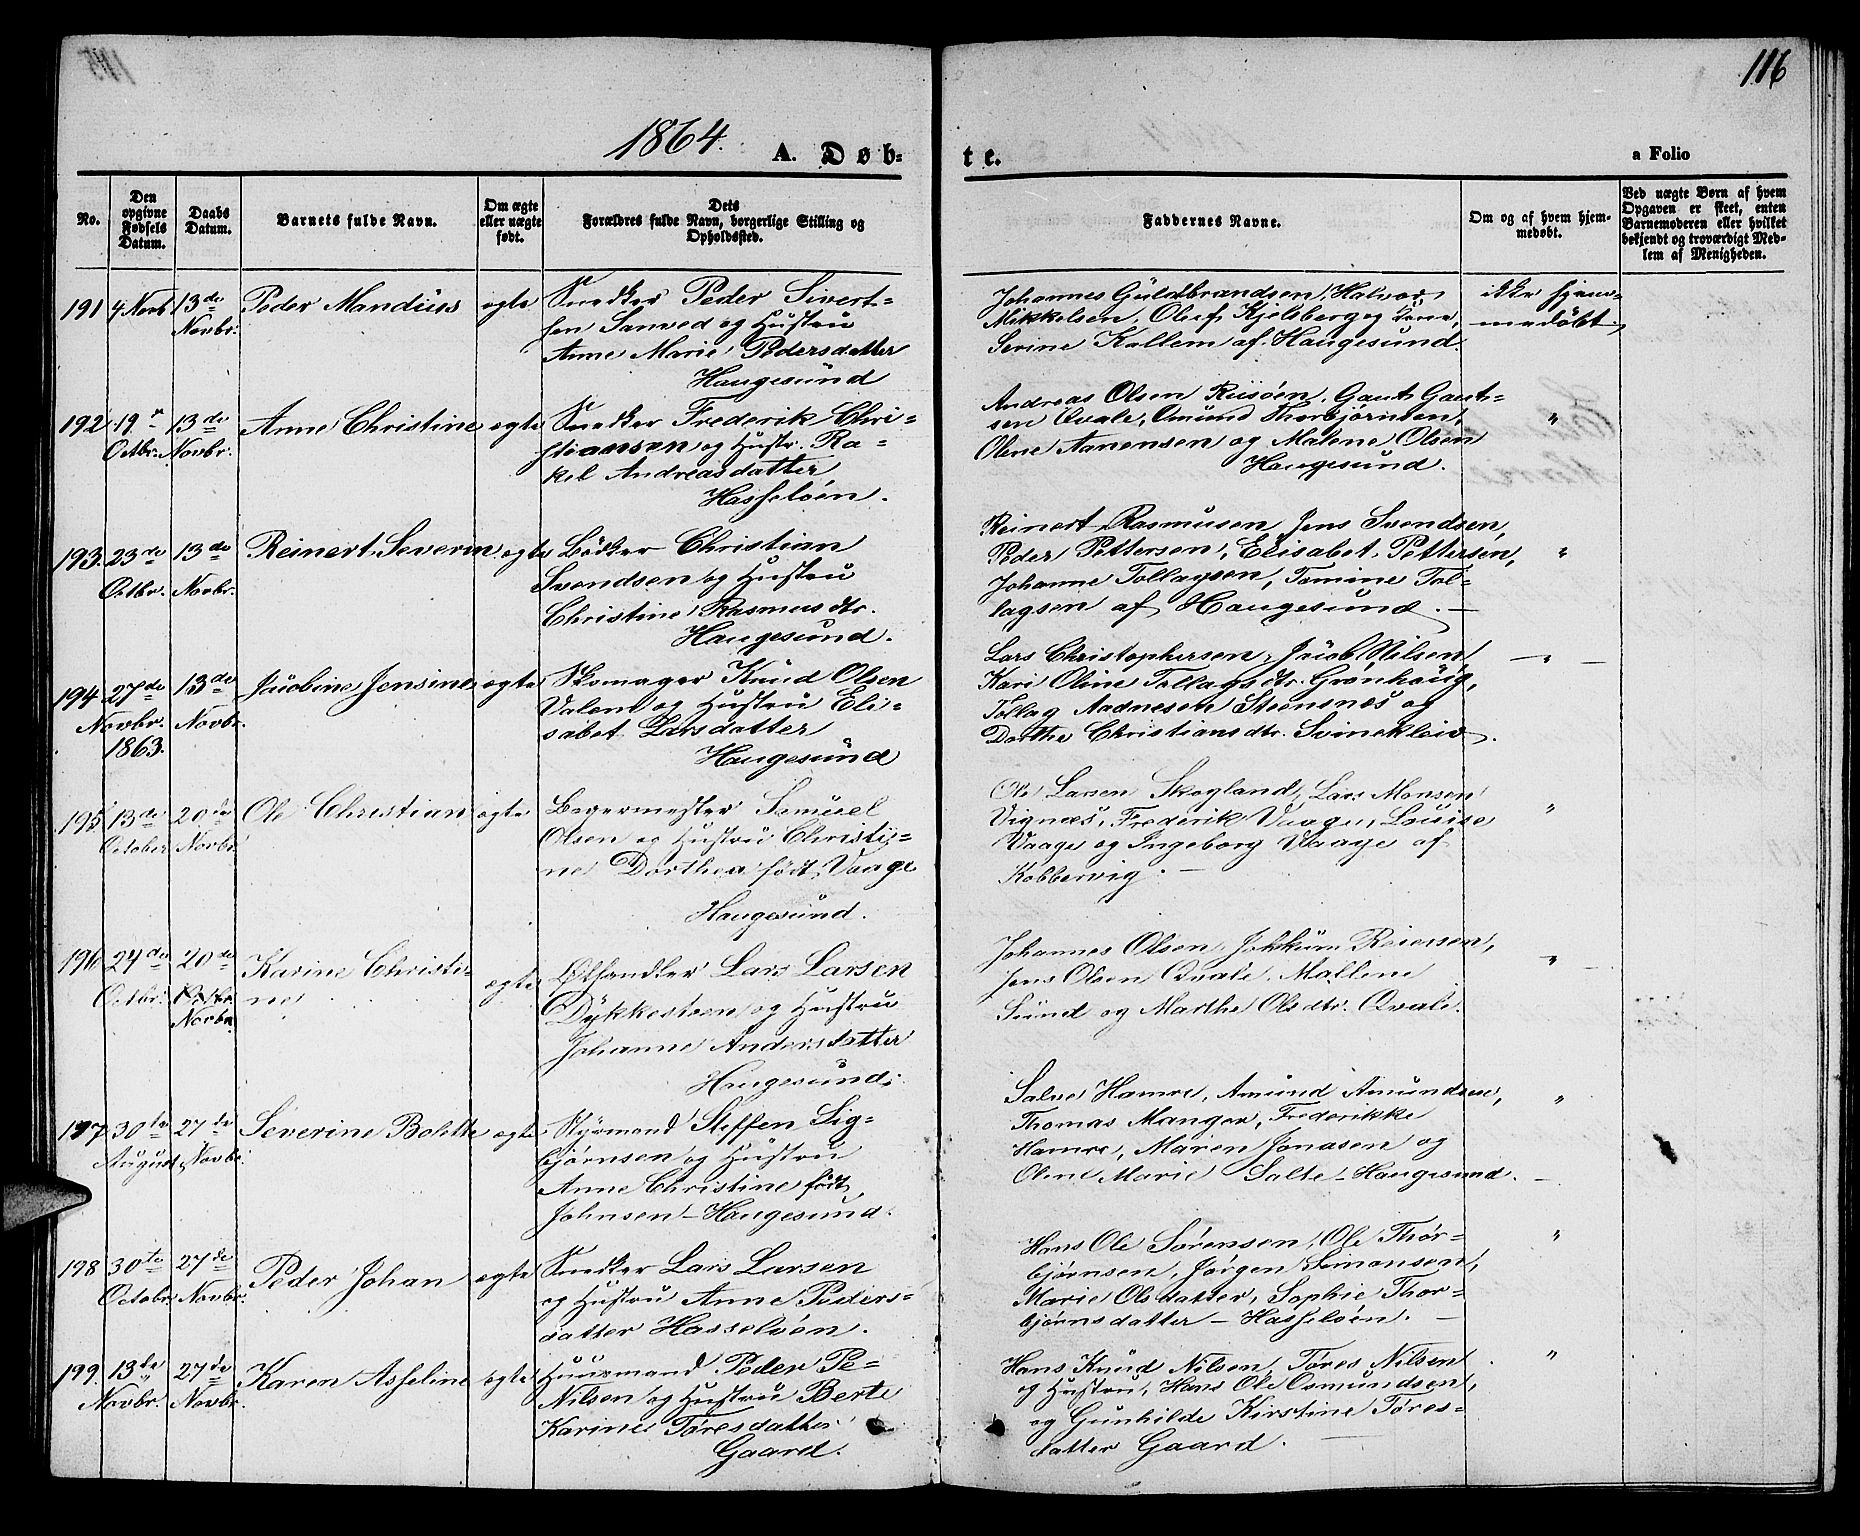 116
1864.
A. Døb-
te.
a Folio
No.
Den opgivne Fødsels Datum.
Daabs Datum.
Barnets fulde Navn.
Om ægte eller uægte født.
Dets Forældres fulde Navn, borgerlige Stilling og Opholdssted.
Faddernes Navne.
Om og af hvem hjemmedøbt.
Ved uægte Børn af hvem Opgaven er skeet, enten Barnemoderen eller hvilket bekjendt og troværdigt Medlem af Menigheden.
191 4 Novb 13de Novbr. Peder Mandius egte
Snedker Peder Sivert-
sen Sanved og Hustru
Anne Marie Pedersdatter
Haugesund
Johannes Guldbrandsen, Halvor
Mikkelsen, Oluf Kjelsberg og
Serine Kallem af Haugesund.
ikke hjem-
medøbt.
192 19 Octbr. 13de Novbr. Anne Christine egte
Snedker Frederik Chri-
stiansen og Hustr. Ra-
kel Andreasdatter
Hasseløen.
Andreas Olsen Risøen, Gaut Gaut-
sen Evale, Omund Thorbjørnsen,
Oline Aanensen og Malene Olsen
Haugesund.
"
193. 23de Octbr. 13de Novbr. Reinert Severin egte
Bødker Christian
Svendsen og Hustru
Christine Rasmusdtr.
Haugesund.
Reinert Rasmusen, Jens Svendsen,
Peder Pettersen, Elisabet Pettersen,
Johanne Tollagsen, Tomine Tol-
lagsen af Haugesund. —
"
194 27de Novbr. 1863. 13de Novbr. Jacobine Jensine egte
Skomager Knud Olsen
Valem og Hustru Eli-
sabet Larsdatter
Haugesund
Lars Christophersen, Jacob Nilsen
Kari Oline Tollagsdtr. Grønhaug,
Tollag Aadnesen Stensnes og
Dorthe Christiansdtr. Svinekleiv.
— " —
195 13de October 20de Novbr Ole Christian egte
Bøgermester Samuel
Olsen og Hustru Christi-
ne Dorthea født Vaage
Haugesund.
Ole Larsen Skogland, Lars Monsen
Vignes, Frederik Vaage, Louise
Vaage og Ingeborg Vaage af
Kobbervig. —
"
196 24de Octbr. 20de Octbr. Novbr. Karine Christi-
ne egte
Ølhandler Lars Larsen
Dykkesteen og Hustru
Johanne Andersdatter
Haugesund.
Johannes Olsen, Jokkum Reiersen,
Jens Olsen Qvale, Mallene
Sund og Marthe Olsdtr. Qvale.
"
197 30te August 27de Novbr. Severine Bohlte egte
Styrmand Steffen Sig-
bjørnsen og Hustru
Anne Christine født
Johnsen – Haugesund.
Salve Hamre, Amund Amundsen,
Thomas Manger, Frederikke
Hamre, Maren Jonasen og
Oline Marie Salte – Haugesund. —
"
198 30te Octobr. 27de Novbr. Peder Johan egte
Snedker Lars Larsen
og Hustru Anne Peders-
datter Hasseløen.
Hans Ole Sørensen, Ole Thor-
bjørnsen, Jørgen Simonsen,
Marie Olsdatter, Sophie Thor-
bjørnsdatter – Hasseløen. —
"
199. 13de Novbr. 27de Novbr. Karen Asseline egte
Huusmand Peder Pe-
Nilsen og Hustru Berte
Karine Tøresdatter
Gaard.
Hans Knud Nilsen, Tøres Nilsen
og Hustru, Hans Ole Osmundsen,
og Gunhilde Kirstine Tøres-
datter Gaard. —
"